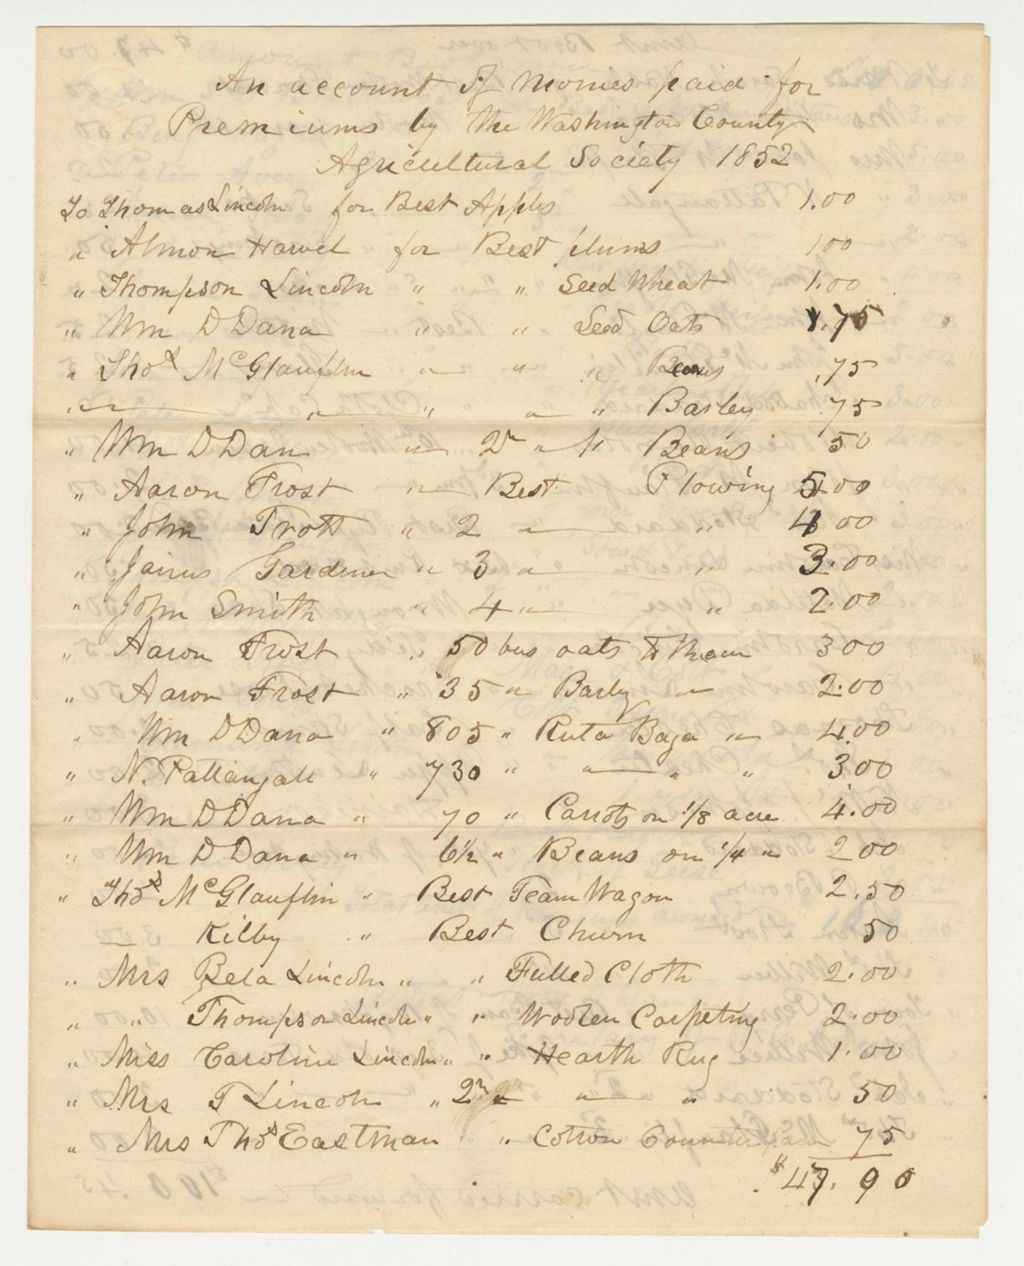 An account of Monies paid for
Premiums by the Washington County
Agricultural Society 1852
To Thomas Lincoln for Best Apples 1.00
" Almon Harvel for Best plums 1 00
" Thompson Lincoln " " Seed Wheat 1.00
" Wm D Dana " " Seed Oats .75
" Thos McGlauflin " " " Beans .75
" " " " " Barley 75
" Wm D Dan " 2n " " Beans 50
" Aaron Frost " Best Plowing 5 00
" John Trott " 2 " " 4 00
" Jairus Gardiner " 3 " " 3.00
" John Smith " 4 " " 2.00
" Aaron Frost " 50 bus oats 3 00
" Aaron Frost " 35 " Barley " 2.00
" Wm D Dana " 805 " Ruta Baga " 4.00
" N. Pattangall " 730 " " " " 3 00
" Wm D Dana " 70 " Carrots on 1/8 acre 4.00
" Wm D Dana " 6 1/2 " Beans on 1/4 " 2 00
" Thos McGlauflin " Best Team Wagon 2.50
" Kilby " Best Churn 50
" Mrs Bela Lincoln " " Fulled Cloth 2.00
" " Thompson Lincoln " " Woolen Carpeting 2.00
" Miss Caroline Lincoln " " Hearth Rug 1.00
" Mrs T Lincoln " 2n " " 50
" Mrs Thos Eastman " Cotton 75
$47.00